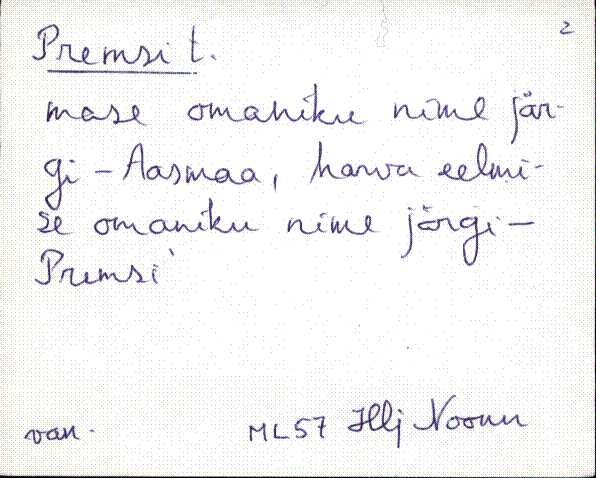 2
Premsi t.
mase omaniku nime jär-
gi - Aasmaa, harva eelmi-
se omaniku nime järgi -
Premsi`
van.
ML57 Hlj Noonu